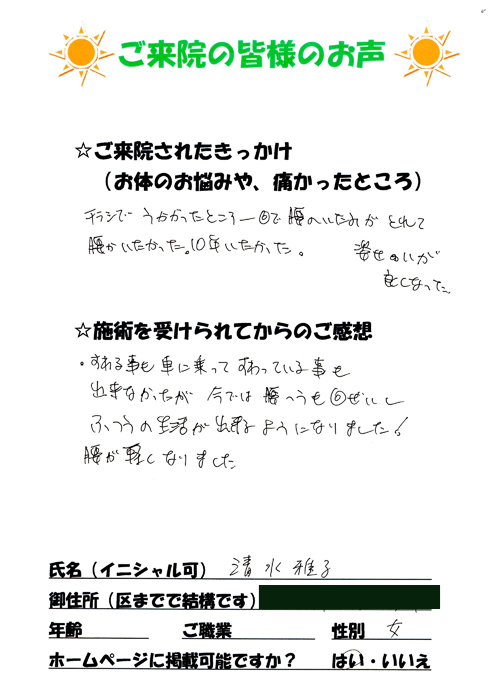 ご来院の皆様のお声
☆ご来院されたきっかけ
（お体のお悩みや、痛かったところ）
チラシで うかがったところ一⑥で 腰のいたみが とれて
腰がいたかった。10年いたかった。
姿せいが
良くなった
☆施術を受けられてからのご感想
・すわる事も 車に乗って すわっている事も
出来なかったが 今では 腰つうも
ふつうの生活が出来るようになりました！
腰が軽くなりました
氏名（イニシャル可） 清水雅子
御住所（区までで結構です）
年齢 ご職業 性別 女
ホームページに掲載可能ですか？ はい・いいえ